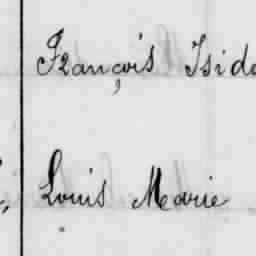 François Isido
Louis Marie